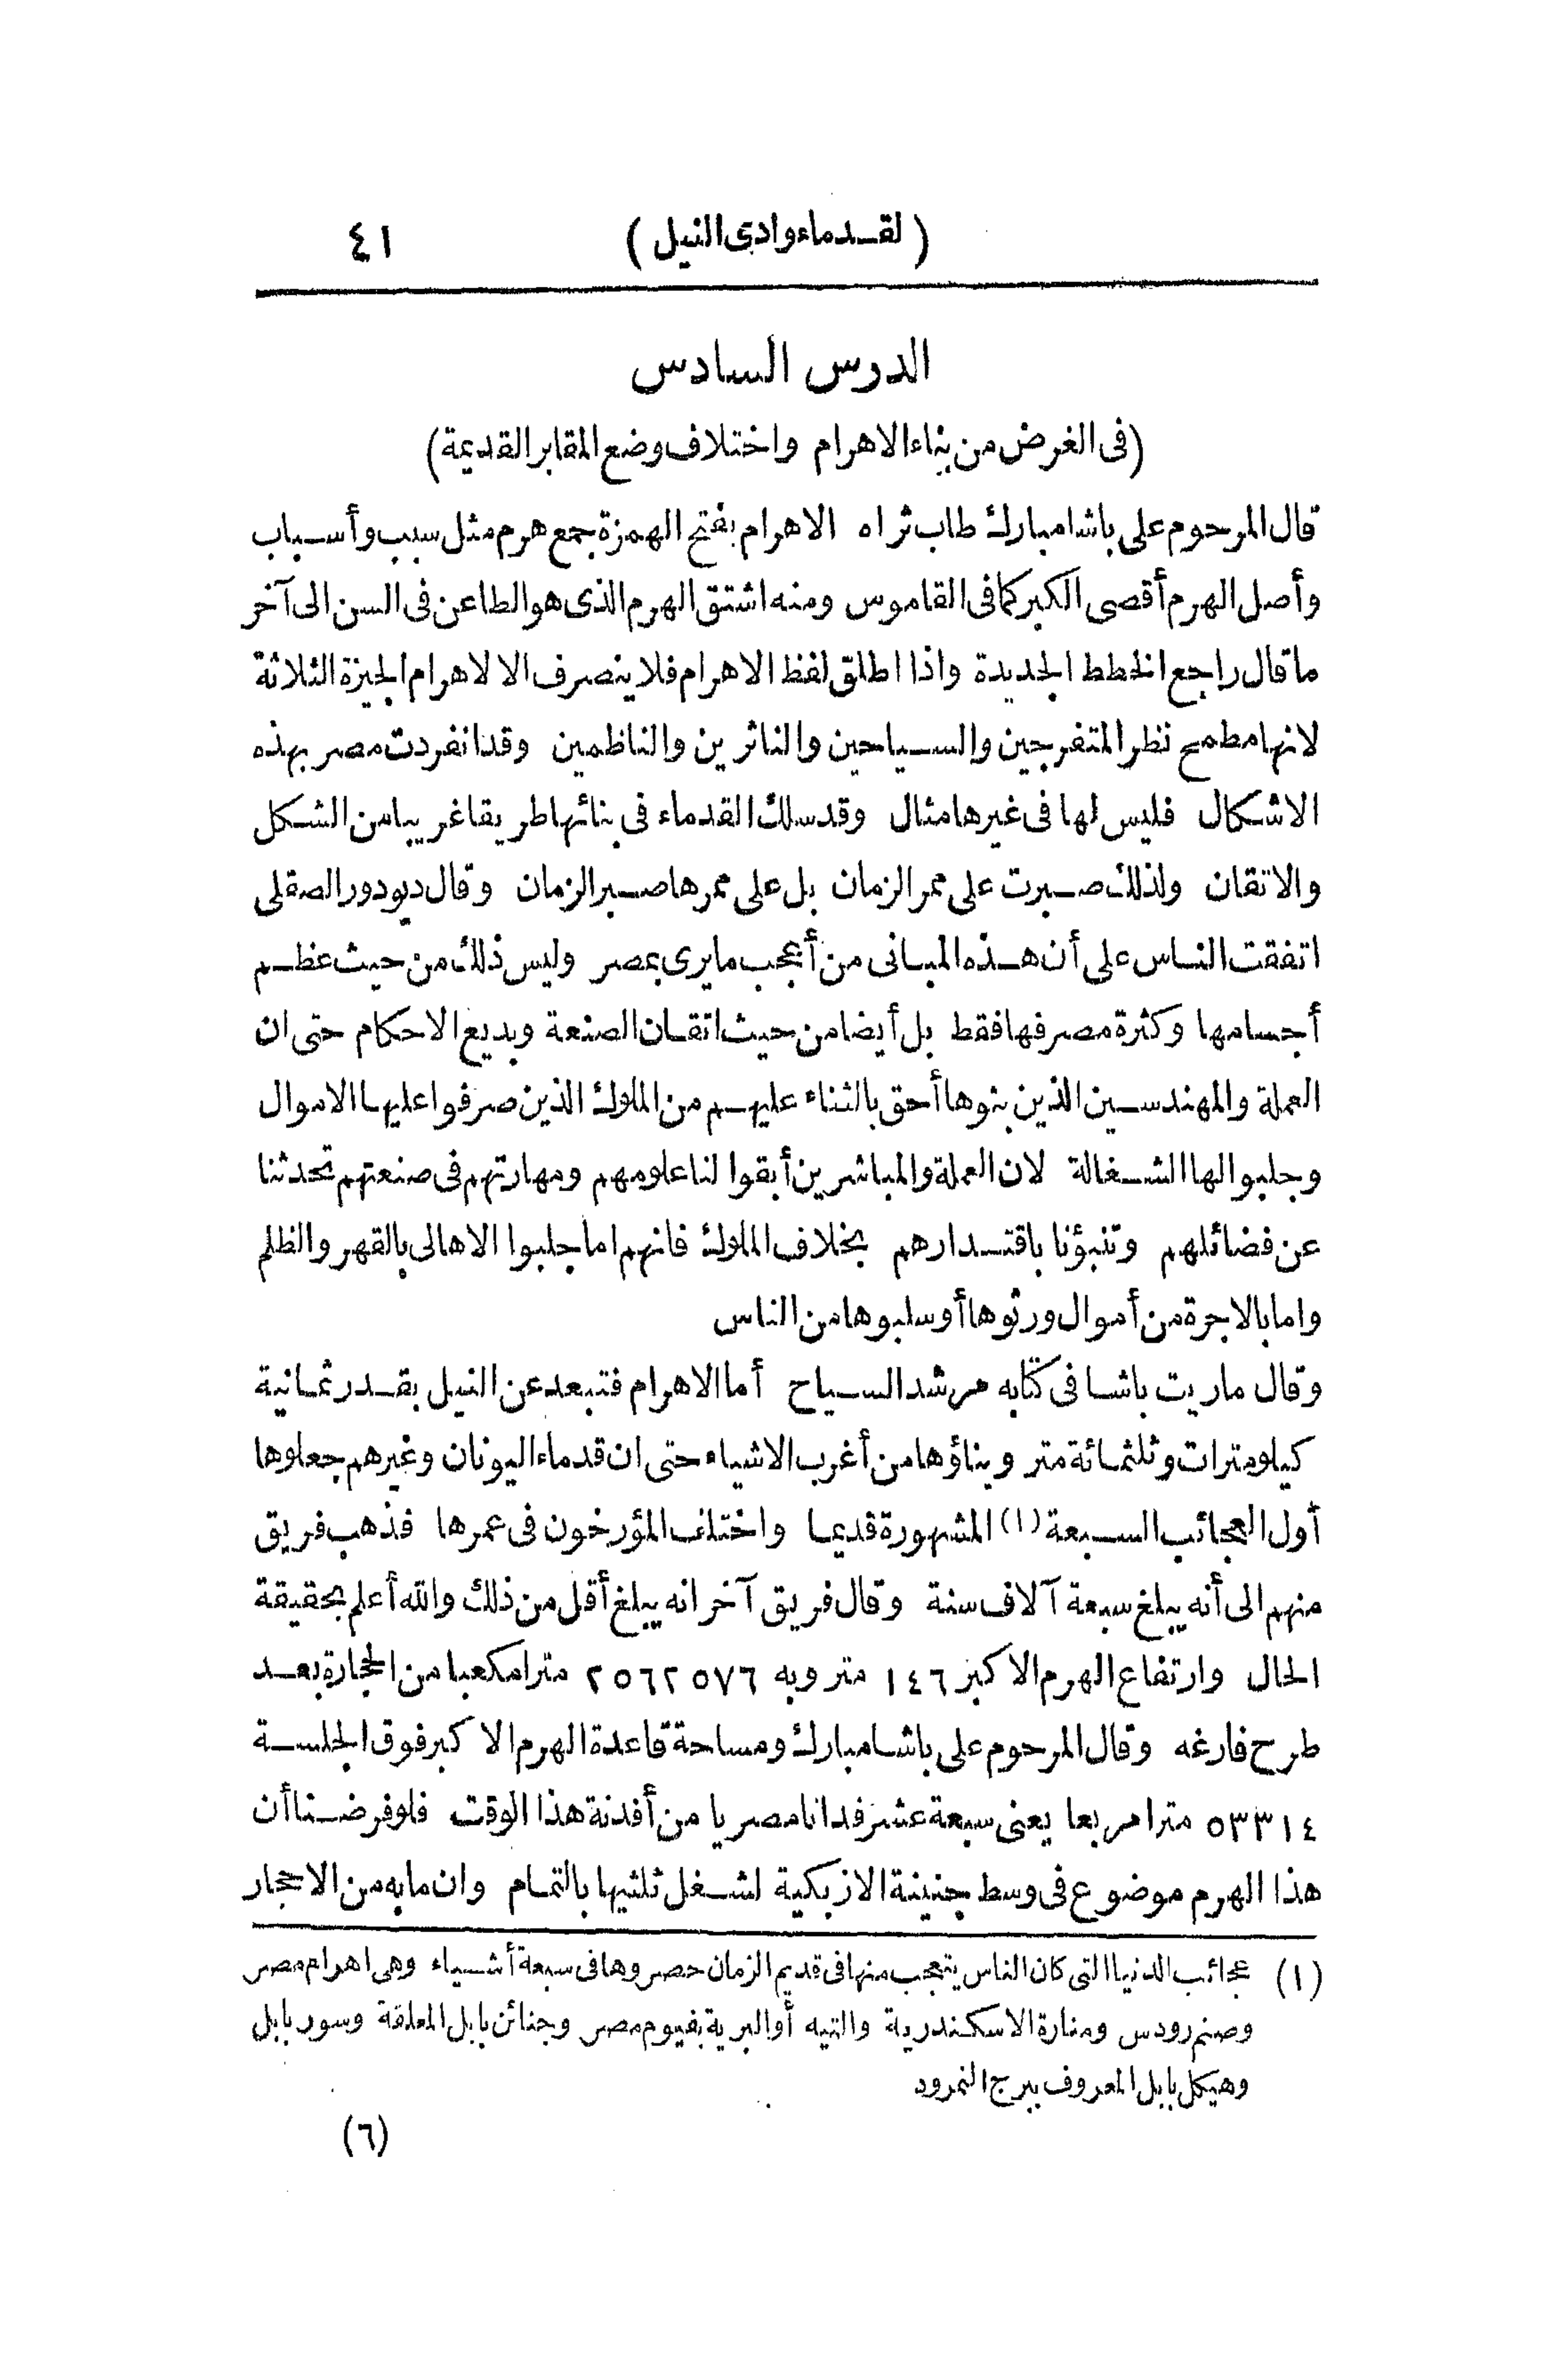 (لقدماء وادى النيل) ٤١
الدرس السادس
(فى الغرض من بناء الاهرام واختلاف وضع المقابر القديمة)
قال المرحوم على باشا مبارك طاب ثراه الاهرام بفتح الهمزة جمع هرم مثل سبب وأسباب
وأصل الهرم أقصى الكبر كما فى القاموس ومنه اشتق الهرم الذى هو الطاعن فى السن الى آخر
ما قال راجع الخطط الجديدة واذا اطلق لفظ الاهرام فلا ينصرف الا لاهرام الجيزة الثلاثة
لانها مطمح نظر المتفرجين والسياحين والناثرين والناظمين وقد انفردت مصر بهذه
الاشكال فليس لها فى غيرها مثال وقد سلك القدماء فى بنائها طريقا غريبا من الشكل
والاتقان ولذلك صبرت على ممر الزمان بل على ممرها صبر الزمان وقال ديودور الصقلى
اتفقت الناس على أن هذه المبانى من أعجب ما يرى بمصر وليس ذلك من حيث عظم
أجسامها وكثرة مصرفها فقط بل أيضا من حيث اتقان الصنعة وبديع الاحكام حتى ان
العملة والمهندسين الذين بنوها أحق بالثناء عليهم من الملوك الذين صرفوا عليها الاموال
وجلبوا لها الشغالة لان العملة والمباشرين أبقوا لنا علومهم ومهارتهم فى صنعتهم تحدثنا
عن فضائلهم وتنبؤنا باقتدارهم بخلاف الملوك فانهم اما جلبوا الاهالى بالقهر والظلم
واما بالاجرة من أموال ورثوها أو سلبوها من الناس
وقال ماريت باشا فى كتابه مرشد السياح أما الاهرام فتبعد عن النيل بقدر ثمانية
كيلومترات وثلثمائة متر وبناؤها من أغرب الاشياء حتى ان قدماء اليونان وغيرهم جعلوها
أول العجائب السبعة (١) المشهورة قديما واختلف المؤرخون فى عمرها فذهب فريق
منهم الى أنه يبلغ سبعة آلاف سنة وقال فريق آخر انه يبلغ أقل من ذلك والله أعلم بحقيقة
الحال وارتفاع الهرم الاكبر ١٤٦ متر وبه ٢٥٦٢٥٧٦ مترا مكعبا من الحجارة بعد
طرح فارغه وقال المرحوم على باشا مبارك ومساحة قاعدة الهرم الاكبر فوق الجلسة
٥٣٣١٤ مترا مربعا يعنى سبعة عشر فدانا مصريا من أفدنة هذا الوقت فلو فرضنا أن
هذا الهرم موضوع فى وسط جنينة الازبكية لشغل ثلثيها بالتمام وان ما به من الاحجار
(١) عجائب الدنيا التى كان الناس يتعجب منها فى قديم الزمان حصروها فى سبعة أشياء وهى اهرام مصر
وصنم رودس ومنارة الاسكندرية والتيه أو البرية بفيوم مصر وجنائن بابل المعلقة وسور بابل
وهيكل بابل المعروف ببرج النمرود
(٦)